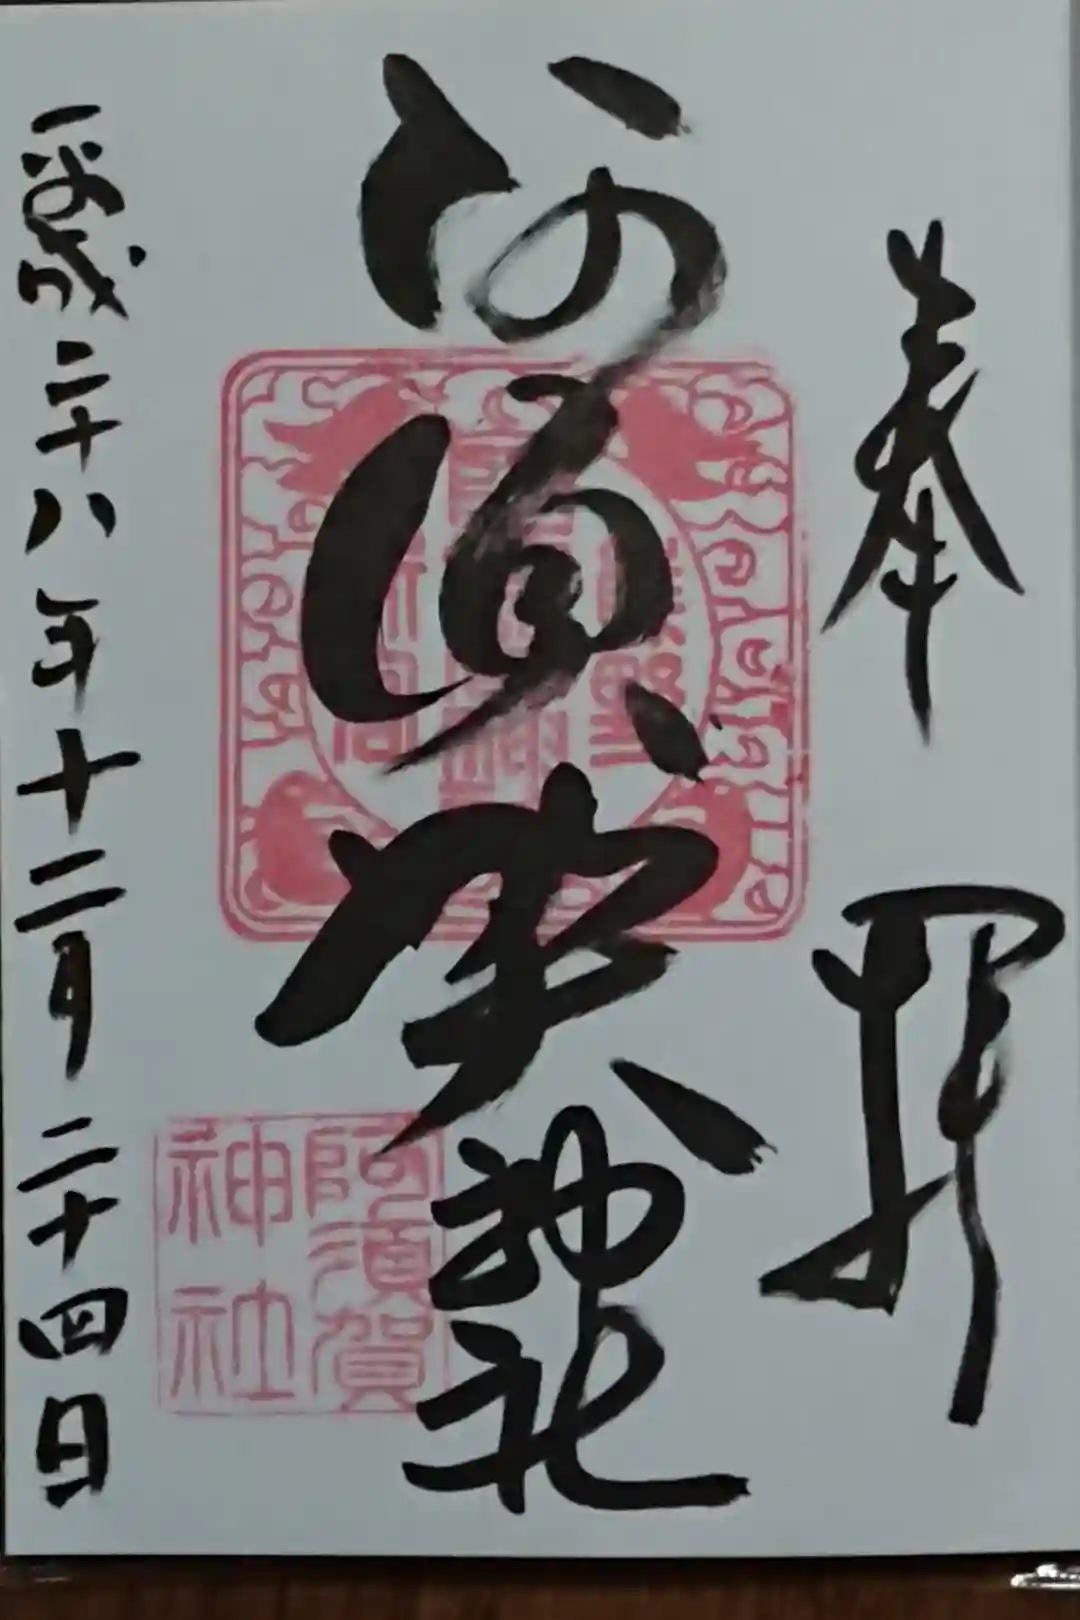 奉拝
阿須賀神社
阿須賀
神社
平成二十八年十二月二十四日